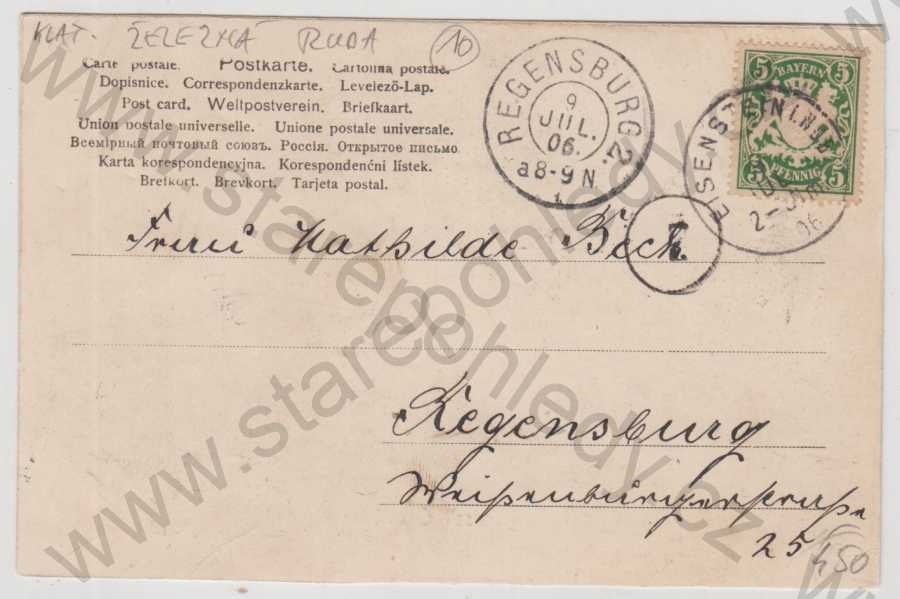 KLAT. ŽELEZNÁ RUDA 10
Carte postale. Postkarte. Cartolina postale.
Dopisnice. Correspondenzkarte. Levelező-Lap.
Post card. Weltpostverein. Briefkaart.
Union postale universelle. Unione postale universale.
Всемірный почтовый союзъ. Россія. Открытое письмо.
Karta korespondencyjna. Korespondenční lístek.
Brefkort. Brevkort. Tarjeta postal.
REGENSBURG 2
9
JUL.
06.
a8-9 N.
1
5 BAYERN 5
5 PFENNIG 5
EISENSTEIN
06
T
Frau Mathilde Beck
Regensburg
Weißenburgerstraße
25
450
www.starepohledy.cz
www.starepohledy.cz